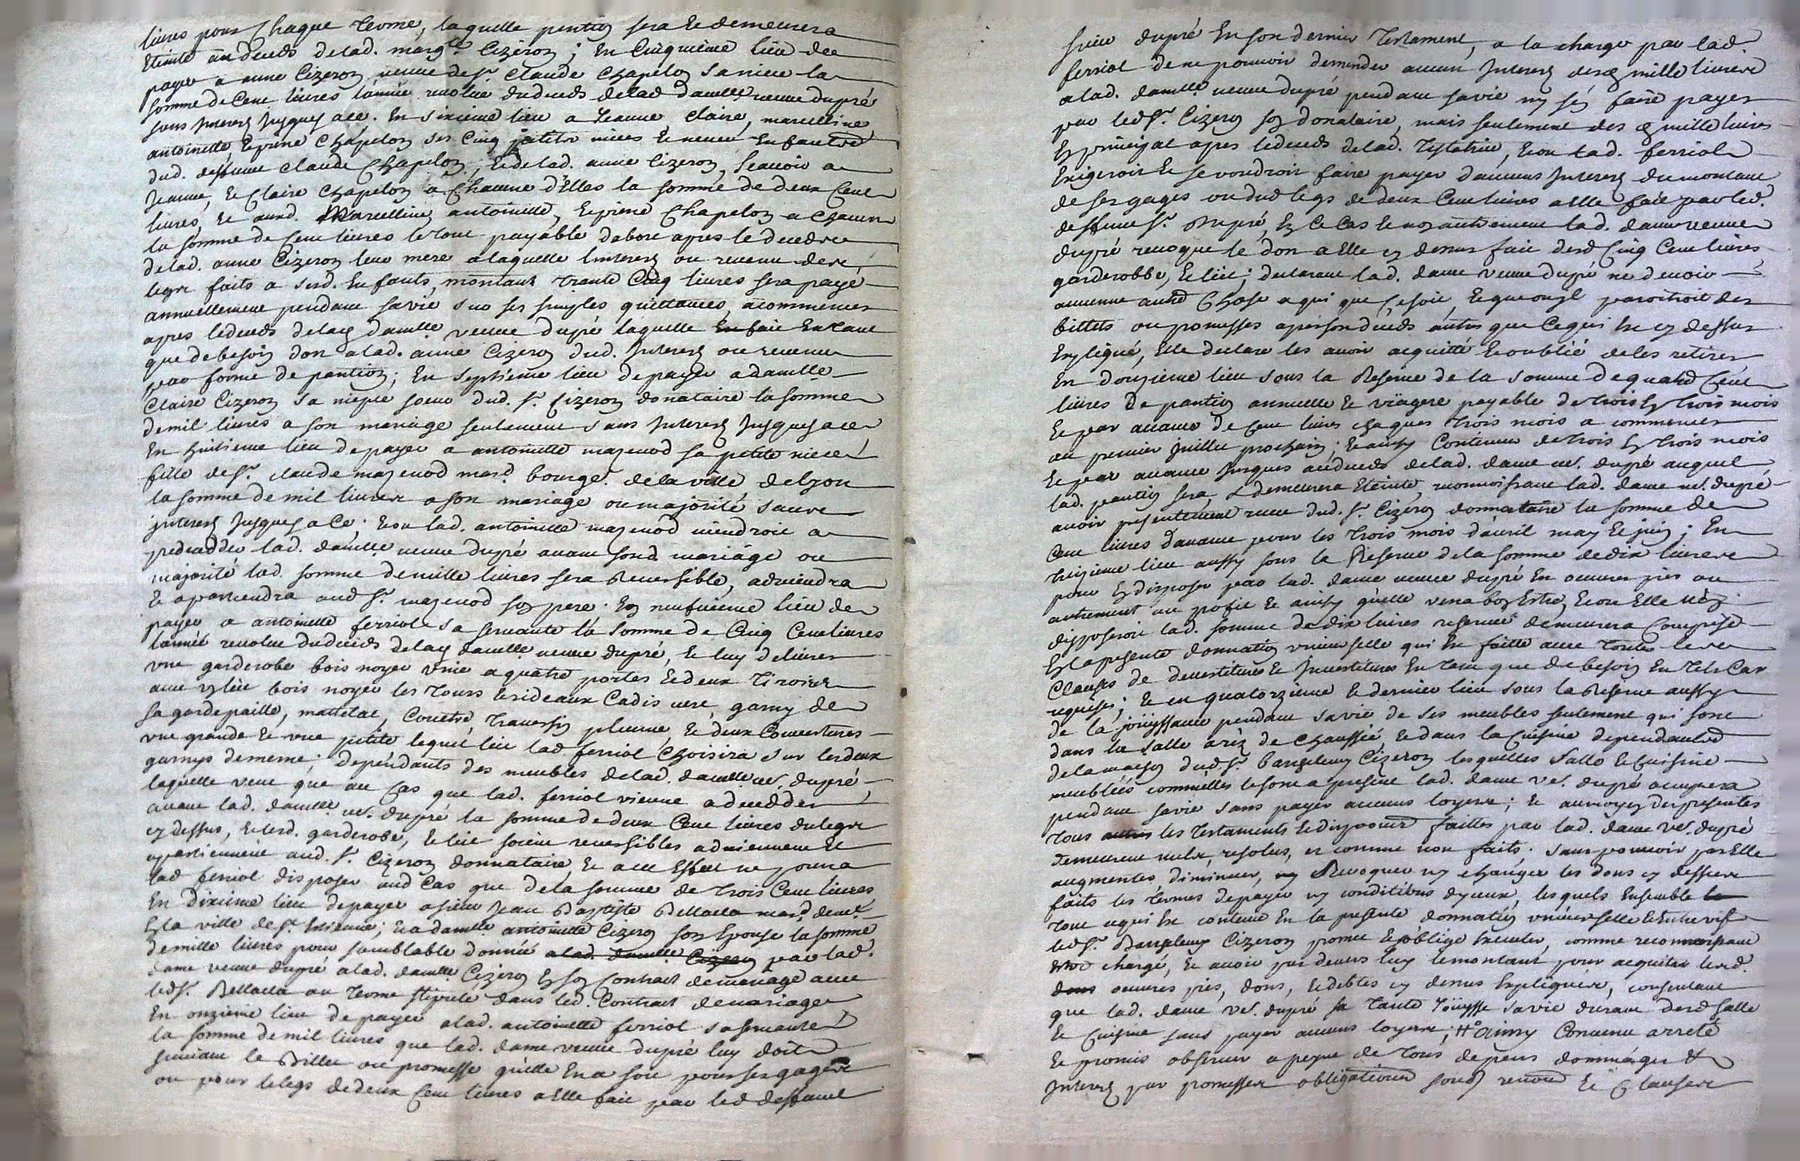 livres pour Chaque terme, laquelle pention sera Et demeurera
Eteinte au deceds de lad. marg.te Cizeron; En Cinquieme lieu de
payer a anne Cizeron veuve de S.r Claude Chapelon sa niece la
somme de Cent livres l'année revolue du deceds de lad damelle veuve dupré
sans Interest Jusques a ce. En sixieme lieu a Jeanne Claire, marcelline
antoinette Et pierre Chapelon ses Cinq petits nieces Et neveu Enfants
dud. deffunt claude Chapelon, Et de lad. anne Cizeron, scavoir a
Jeanne, Et Claire Chapelon a Chacune d'Elles la somme de deux Cent
livres, Et aud. Marcelline antoinette, Et pierre Chapelon a Chacun
la somme de Cent livres le tout payable d'abord apres le deceds
de lad. anne Cizeron leur mere a laquelle l'interest ou revenu des
legs faits a sesd. Enfants, montant trante Cinq livres sera payé
annuellement pendant sa vie sur ses simples quittances, a commencer
apres le deceds de lad. damelle veuve dupré laquelle En fait En tant
que de besoin don a lad. anne Cizeron dud. Interest ou revenu
par forme de pention; En septième lieu de payer a damelle
Claire Cizeron sa niepce soeur dud. S.r Cizeron donataire la somme
de mil livres a son mariage seulement sans Interest Jusques a ce
En huitieme lieu de payer a antoinette mazenod sa petite niece
fille de S.r claude mazenod mar.d bourge.s de la ville de Lyon
la somme de mil livres a son mariage ou majorité sans
Interest Jusques a Ce. Et ou lad. antoinette mazenod viendroit a
predeceder lad. damelle veuve dupré avant sond. mariage ou
majorité lad. somme de mille livres sera Reversible, adviendra
Et apartiendra aud S.r mazenod son pere. En neufvieme lieu de
payer a antoinette ferriol sa servante la somme de Cinq Cent livres
l'année revolue du deceds de lad. damelle veuve dupré, Et luy delivrer
une garderobe bois noyer a quatre portes Et deux tiroirs
avec un lit bois noyer les tours Et rideaux Cadis vert, garny de
sa gardepaille, mattelat, Couetre traversin plume Et deux Couvertures
une grande Et une petite lequel lit lad ferriol Choisira sur les deux
garnys de meme. dependants des meubles de lad. damelle ve. dupré
laquelle veut que au Cas que lad. ferriol vienne a deceder
avant lad. damelle ve. dupré la somme de deux Cent livres du legs
cy dessus, Et lesd. garderobe, Et lit soient reversibles adviennent Et
appartiennent aud. S.r Cizeron donnataire Et a cet Effet ne poura
lad ferriol disposer aud Cas que de la somme de trois Cent livres
En Dixieme lieu de payer a sieur Jean Baptiste Bellacla mar.d demt.
En la ville de S.t Estienne; Et a damelle antoinette Cizeron son Epouse la somme
de mille livres pour semblable donnée a lad. damelle Cizeron par lad.
dame veuve dupré a lad. damelle Cizeron En son Contract de mariage avec
led S.r Bellacla au terme stipulé dans led. Contract de mariage
En onzieme lieu de payer a lad. antoinette ferriol sa servante
la somme de mil livres que lad. dame veuve dupré luy doit
suivant le Billet ou promesse qu'elle En a soit pour ses gages
ou pour le legs de deux Cent livres a Elle fait par led deffunt
sieur dupré En son dernier testament, a la charge par lad.
ferriol de ne pouvoir demander aucun Interest desd mille livres
a lad. damelle veuve dupré pendant sa vie ny s'en faire payer
par led S.r Cizeron son donataire, mais seulement des d mille livres
En principal apres le deceds de lad. testatrice, Et ou lad. ferriol
Exigeroit Et se voudroit faire payer d'aucuns Interest du montant
de ses gages ou dud legs de deux Cent livres a elle fait par led.
deffunt S.r dupré, En Ce Cas Et non autrement lad. dame veuve
dupré revoque le don a Elle cy dessus fait desd Cinq Cent livres
garderobbe, Et lit; declarant lad. dame veuve dupré ne devoir
aucune autre Chose a qui que Ce soit Et que ou il paroitroit des
billets ou promesses apres son deceds autres que Ce qui Est cy dessus
Expliqué, Elle declare les avoir acquitté Et oublié de les retirer
En douzieme lieu sous la Reserve de la somme de quatre Cent
livres De pention annuelle Et viagere payable de trois En trois mois
Et par avance de Cent livres chaques trois mois a commencer
au premier Juillet prochain; Et ainsy Continuer de trois En trois mois
Et par avance Jusques au deceds de lad. dame ve. dupré auquel
lad. pention sera Et demeurera Eteinte, reconnoissant lad. dame ve. dupré
avoir presentement receu dud. S.r Cizeron donnataire la somme de
Cent livres d'avance pour les trois mois d'avril may Et juin; En
treizieme lieu aussy sous la Reserve de la somme de dix livres
pour En disposer par lad. dame veuve dupré En oeuvres pies ou
autrement au profit Et ainsy qu'elle verra bon Estre, Et ou Elle n'en
disposeroit lad. somme de dix livres reservée demeurera Comprise
En la presente donnation universelle qui Est faitte avec toutes les
Clauses de devestiture Et Investiture En tant que de besoin En tels Cas
requises; Et en quatorzieme Et dernier lieu sous la Reserve aussy
de la jouyssance pendant sa vie de ses meubles seulement qui sont
dans la salle a rez de Chaussée Et dans la Cuisine dependants
de la maison dud S.r Barthelemy Cizeron lesquelles Salle Et Cuisine
meublées comm'elles le sont a present lad. dame ve. dupré occupera
pendant sa vie sans payer aucuns loyers; Et au moyen des presentes
tous autres les testaments Et dispositions faittes par lad. dame ve. dupré
demeurent nuls, resolus, et comme non faits. sans pouvoir par Elle
augmenter diminuer, ny Revoquer ny changer les dons cy dessus
faits les termes de payer ny conditions d'yceux, lesquels Ensemble le
tout ce qui Est contenu En la presente donnation universelle Entre vifs
led S.r Barthelemy Cizeron promet Et oblige Executer, comme reconnoissant
Estre chargé, Et avoir par devers luy le montant pour acquitter lesd.
dons oeuvres pies, dons, Et debtes cy dessus Expliquées, consentant
que lad. dame ve. dupré sa tante Jouysse sa vie durant desd Salle
Et Cuisine sans payer aucuns loyers; #o ainsy Convenu arreté
Et promis observer a peyne de tous depens dommages Et
Interest par promesses obligations soud. renon. Et Clauses